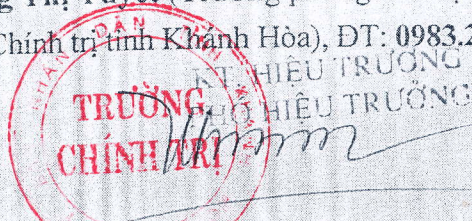 Chính trị tỉnh Khánh Hòa), ĐT: 0983.2
KT. HIỆU TRƯỞNG
PHÓ HIỆU TRƯỞNG
NHÂN DÂN
TRƯỜNG
CHÍNH TRỊ